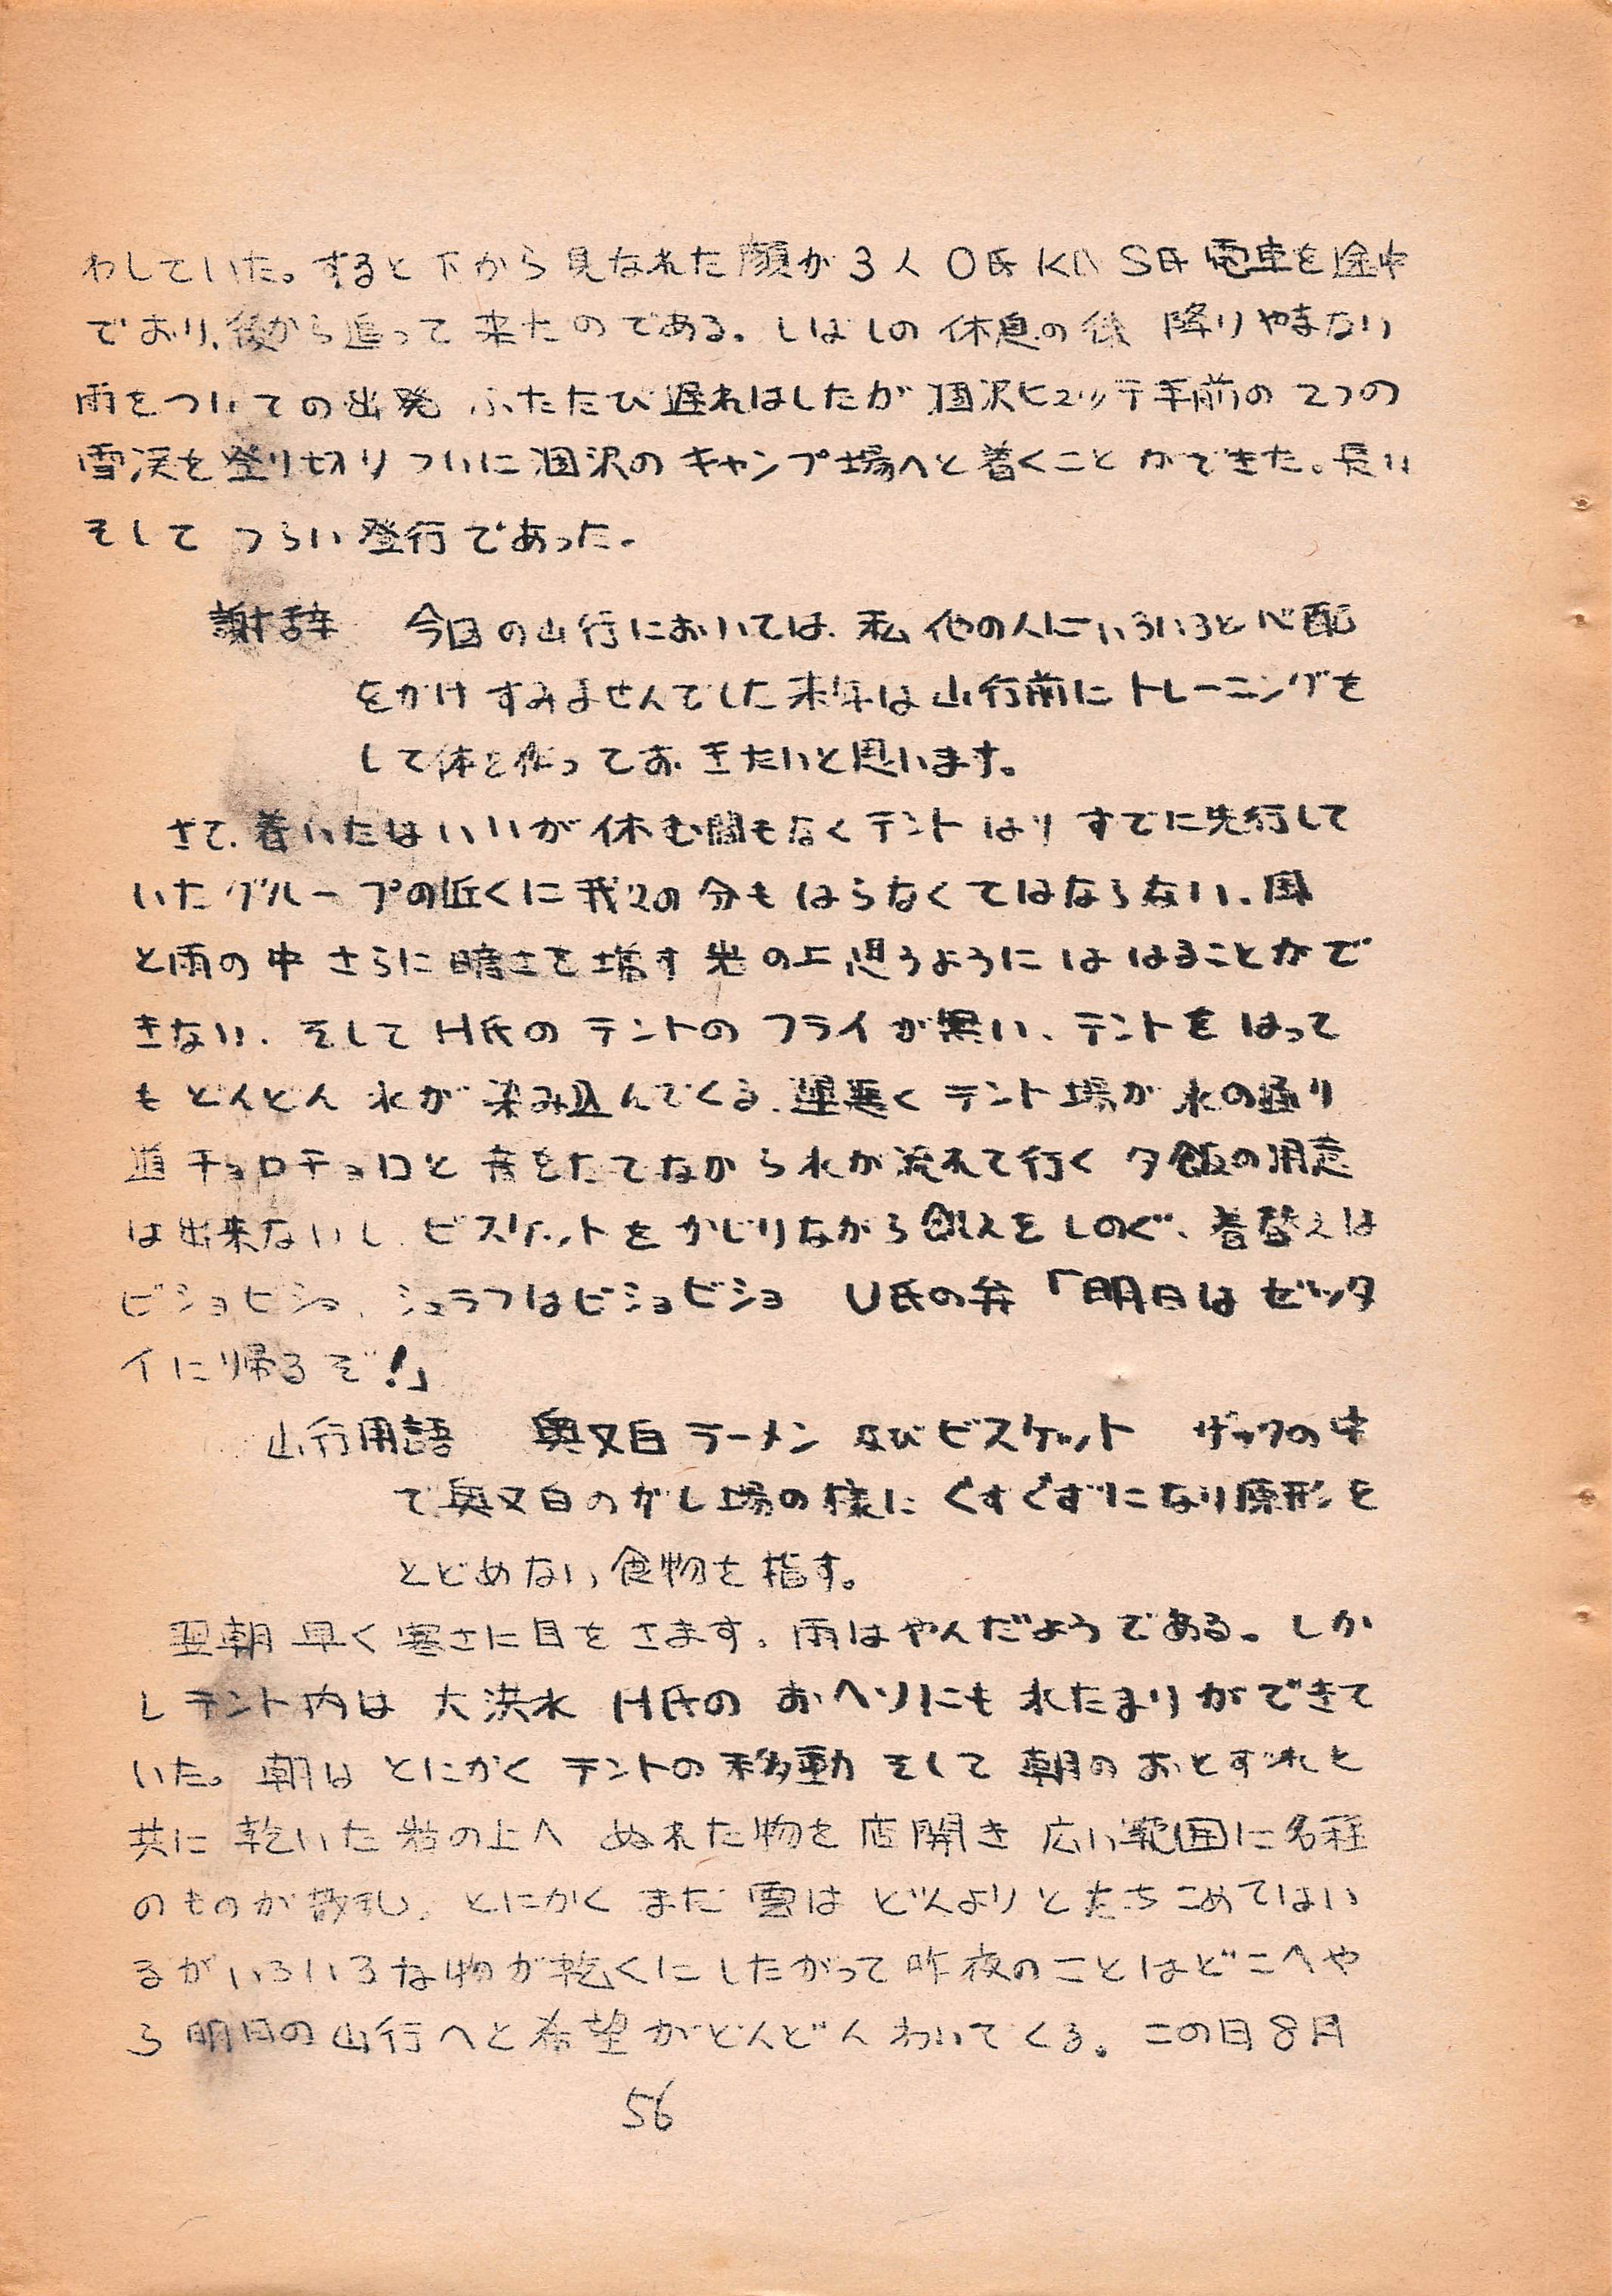 わしていた。すると下から見なれた顔が3人 O氏 K氏 S氏 電車を途中
でおり、後から追って来たのである。しばしの休息の後 降りやまない
雨をついての出発 ふたたび遅れはしたが 涸沢ヒュッテ手前の2つの
雪渓を登り切りついに涸沢のキャンプ場へと着くことができた。長い
そして つらい登行であった。
謝辞 今回の山行においては、私 他の人にいろいろと心配
をかけすみませんでした 来年は山行前にトレーニングを
して体を作っておきたいと思います。
さて、着いたはいいが休む間もなくテントはり すでに先行して
いたグループの近くに我々の分もはらなくてはならない、風
と雨の中 さらに暗さを増す 岩の上 思うようにははることがで
きない、そしてH氏のテントのフライが無い、テントをはって
もどんどん水が染み込んでくる、運悪くテント場が水の通り
道 チョロチョロと音をたてながら水が流れて行く 夕飯の用意
は出来ないし、ビスケットをかじりながら飢えをしのぐ、着替えは
ビショビショ、シュラフはビショビショ U氏の弁「明日はゼッタ
イに帰るぞ!」
山行用語 奥又白ラーメン 及びビスケット ザックの中
で奥又白のガレ場の様に ぐずぐずになり原形を
とどめない食物を指す。
翌朝早く寒さに目をさます、雨はやんだようである。しか
しテント内は 大洪水 H氏の おへソにも水たまりができて
いた。朝は とにかく テントの移動 そして 朝のおとずれと
共に 乾いた岩の上へ ぬれた物を店開き 広い範囲に各種
のものが散乱、とにかくまだ雲はどんよりとたちこめてはい
るがいろいろな物が乾くにしたがって昨夜のことはどこへや
ら 明日の山行へと希望がどんどんわいてくる。この日8月
56